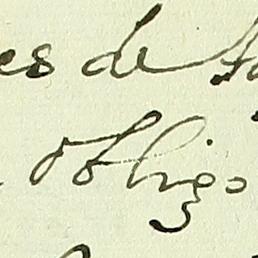 es de
obligo